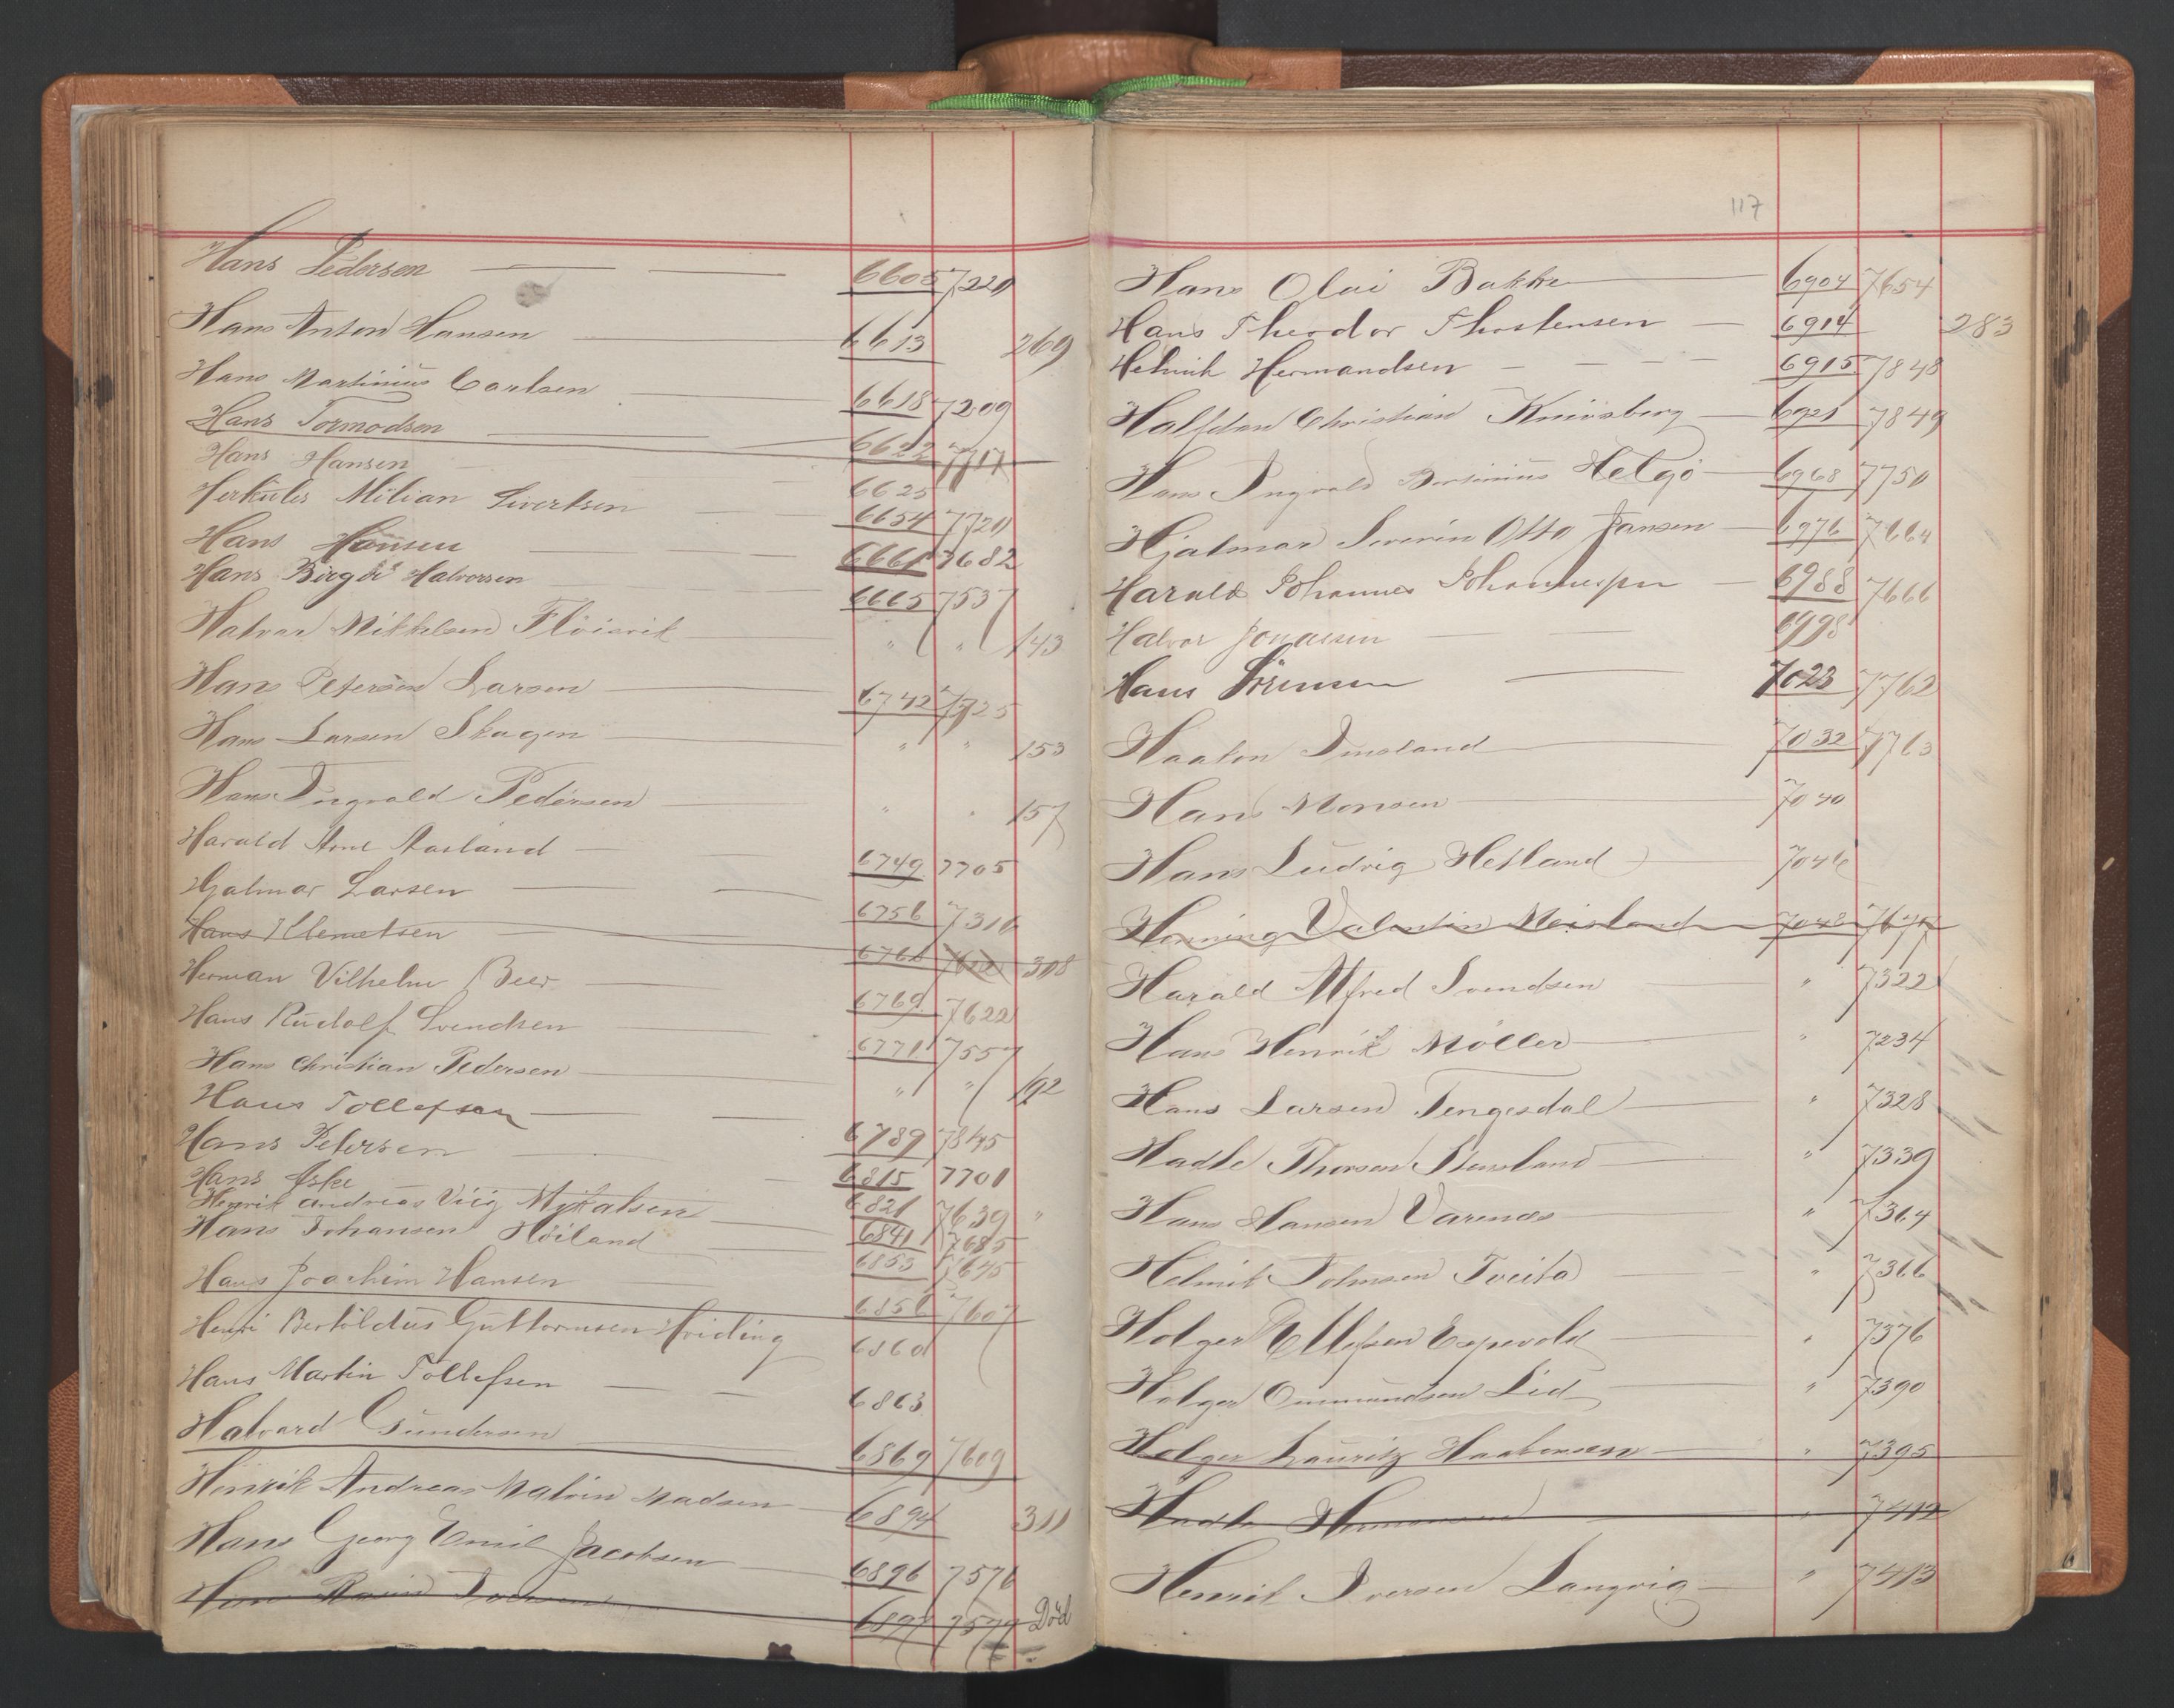 Hans Pedersen 6605 7220
Hans Anton Hansen 6613 269
Hans Martinius Carlsen 6618 7209
Hans Tormodsen 6622
Hans Hansen 6625
Herkules Milian Sivertsen 6654 7720
Hans Hansen 6661 7682
Hans Birger Halvorsen 6665 7537
Halvor Mikkelsen Flöisvik " " 143
Hans Petersen Larsen 6742 7725
Hans Larsen Skagen " " 153
Hans Ingvald Pedersen " " 157
Harald Arne Aasland 6749 7705
Hjalmar Larsen 6756 7316
Hans Klemetsen 6761 308
Herman Vilhelm Beer 6769 7622
Hans Rudolf Svendsen 6771 7557
Hans Christian Pedersen " " 192
Hans Tollefsen 6789 7845
Hans Petersen 6815 7701
Hans Eske 6821 7639 "
Henrik Andreas Viig Mikalsen 6841 7685
Hans Johansen Höiland 6853 7645
Hans Joachim Hansen 6856 7607
Henri Bertoldus Guttormsen Hviding 6860
Hans Martin Tollefsen 6863
Halvard Gundersen 6869 7609
Henrik Andreas Malvin Madsen 6894 311
Hans Georg Emil Jacobsen 6896 7576
Hans 6897 7579 Död
117
Hans Olai Bakke 6904 7654
Hans Theodor Thorstensen 6914 283
Helmik Hermandsen 6915 7848
Halfdan Christian Knivsberg 6921 7849
Hans Ingvald Bertinius Helgö 6968 7750
Hjalmar Severin Otto Jansen 6976 7664
Harald Johannes Johannessen 6988 7666
Halvor Jonassen 6998
Hans Sörensen 7023 7762
Haakon Imsland 7032 7763
Hans Monsen 7040
Hans Ludvig Hetland 7046
Henning Valentin Meisland 7048
Harald Alfred Svendsen " 7322
Hans Henrik Möller " 7234
Hans Larsen Tengesdal " 7328
Hadle Thorsen Stensland " 7339
Hans Hansen Varenes " 7364
Helmik Tolmsen Tveita " 7366
Holger Ellefsen Espevold " 7376
Holger Ommundsen Lid " 7390
Holger Lauritz Haakonsen " 7395
Hadle " 7412
Henrik Iversen Langvig " 7413